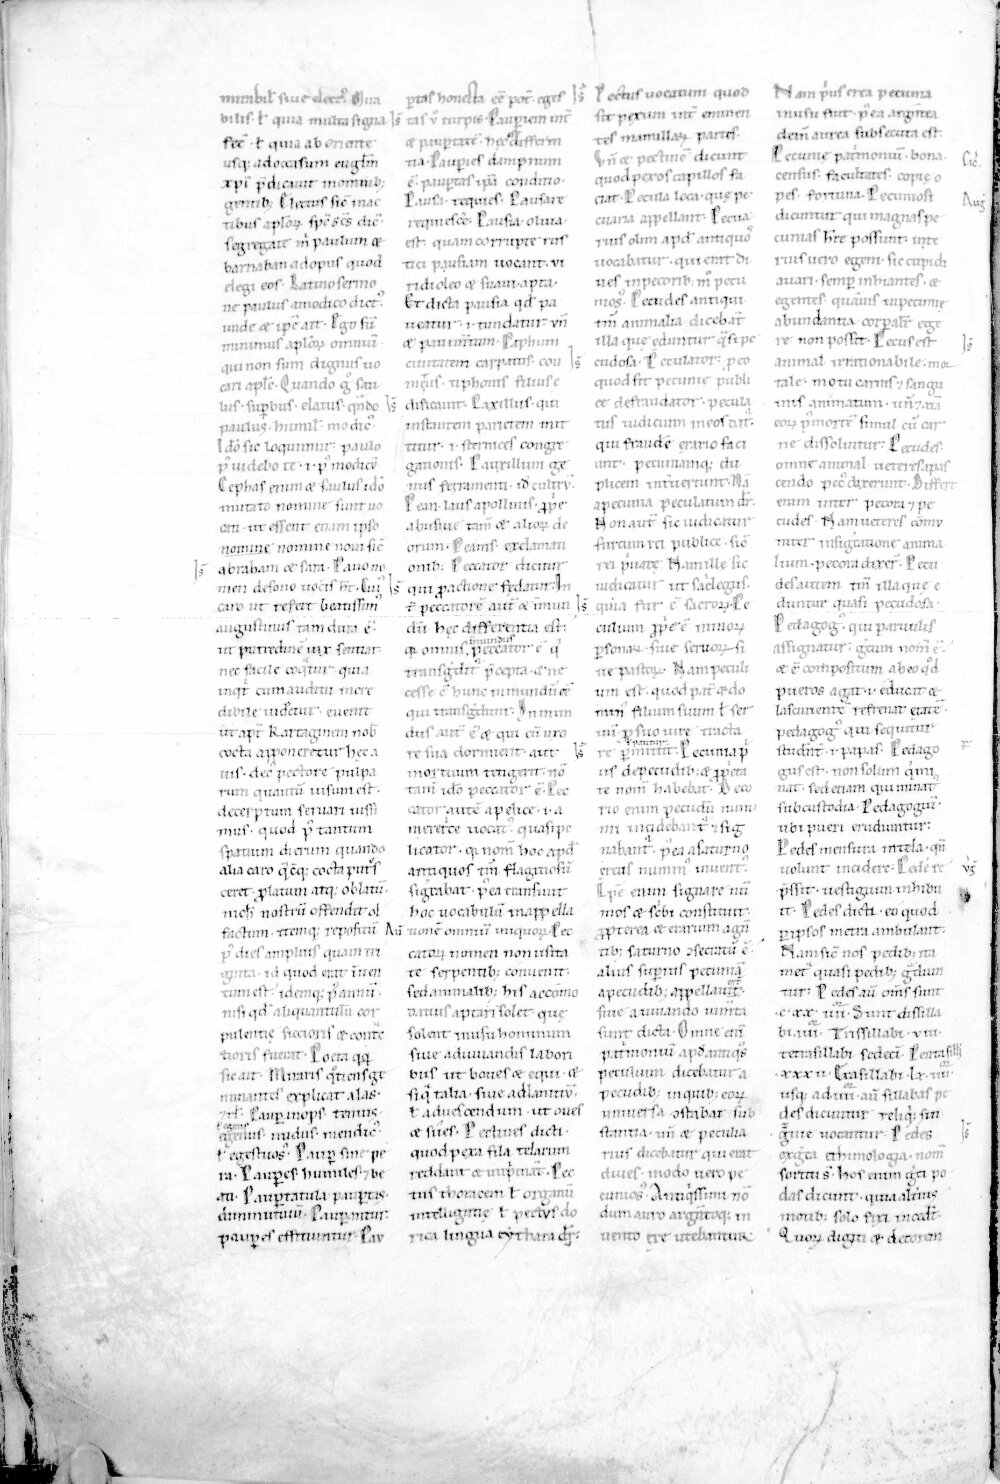 mirabil siue elect᷒. Mira
bilis. ł quia multa signa
fec̄. ł quia ab oriente
usq; ad occasum eugłm̄
xp̄i p̄dicauit in omnib;
gentib; Electus sic̄ in ac
tibus apłoꝝ sp̄c sc̄s dic̄.
segregate m̄ paulum &
barnaban ad opus quod
elegi eos. Latino sermo
ne paulus a modico dict᷒.
unde & ip̄e ait. Ego sū
minimus apłoꝝ omniū.
qui non sum dignus uo
cari apłs. Quando g̊ sau
lus. supbus. elatus. qn̄do
paulus. humil. modic᷒.
Ido̅ sic loquimur. paulo
p᷒ uidebo te. i. p᷒ modicū.
Cephas enim & saulus ido̅
mutato nomine sunt uo
cati. ut essent etiam ipso
nomine nomine noui sic̄
abraham & sara. Pauo no
men de sono uocis hт̄. Cui᷒
caro ut refert beatissim᷒
augustinus tam dura ē.
ut putredine uix sentiat
nec facile coqͣtur. quia
inqͥt cum auditu incre
dibile uidetur. euenit
ut apt̄ Kartaginem nob̄
cocta apponeretur hec a
uis. de c᷒ pectore pulpa
rum quantū uisum est.
deceptum seruari iussi
mus. quod p᷒ tantum
spatium dierum quando
alia caro q̄cq; cocta put͛s
ceret. platum atq; oblatū.
nichł nostrū offendit ol
factum. itemq; repositū
p᷒ dies amplius quam tri
ginta. id quod erat inuen
tum est. idemq; p᷒ annū.
nisi qd̄ aliquantulū cor
pulentię siccioris & contc̄
tioris fuerat. Poeta qͦq;
sic ait. Miraris qͦtiens ge
mmantes explicat alas.
Paup inops. tenuis.
egenus. nudus. mendic᷒.
ł egestuos᷒. Paup sine pe
ra. Paupes humiles ⁊ be
ati. Pauptatula pauptis
diminutiuū. Paupantur.
paupes efficiuntur. Pau
ptas honesta eē pot̄. eges
tas u᷒ turpis. Paupiem int̄
& pauptatē. hec differen
tia. Paupies dampnum
ē. pauptas ip̄a conditio.
Pausa. requies. Pausare
requiesc̄e. Pausia. oliua
est. quam corrupte rus
tici pausiam uocant. ui
ridi oleo & suaui. apta.
Et dicta pausia qd̄ pa
ueatur. i. tundatur. un̄
& pauim̄tum. Paphum
ciuitatem carpatus. cou
meus᷒. tiphonis filius e
dificauit. Paxillus. qui
instantem parietem mit
titur. i. sternices congre
gationis. Pauxillum ge
nus ferramenti. id cultrū.
Pean. laus apollinis. ppe
abusiue tam̄ & alioꝝ de
orum. Peanis. exclamati
onib; Peccator dicitur
qui p actione fedatur. In
t̄ peccatorē aut̄ & inmun
dū. hec differentia est.
qͣ omnis peccator ē qͥ
inmundus
transgdit᷒ p̄cepta. & ne
cesse ē hunc inmundū eē
qui transgditur. Inmun
dus aut̄ ē & qui cū uxo
re sua dormierit. aut
mortuum tetigerit. nō
tam̄ ido̅ peccator ē. Pec
cator autē a pelice. i. a
meretrice uocat᷒. quasi pe
licator. qͥ nom̄ hoc apd̄
antiquos tm̄ flagitiosū
significabat. p᷒ea transiuit
hoc uocabulū in appella
tionē omniū iniquoꝝ. Pec
catoꝝ nomen non usita
te serpentib; conuenit.
sed animalib; his accōmo
datius aptari solet que
solent in usu hominum
siue adiuuandis labori
bus ut boues & equi. &
siqͣ talia. siue ad lanitiū.
ł ad uescendum. ut oues
& sues. Pectines dicti.
quod pexa fila telarum
reddant & imp̄mant. Pec
tus thoracem ł organū
intelligentię ł pectus do
rica lingua cythara dr̄.
Pectus uocatum quod
sit pexum int̄ eminen
tes mamillarꝝ partes.
Un̄ & pectinē dicunt
quod pexos capillos fa
ciat. Pecula loca. quę pe
cuaria appellant. Pecua
rius olim apd̄ antiquos᷒
uocabatur. qui erat di
ues in pecorib; m͂ pecu
nios᷒. Pecudes antiqui
tm̄ animalia dicebāt
illa quę eduntur. q̄si pe
cudosa. Peculator: p eo
quod sit pecunię publi
ce defraudator. pecula
tus iudicium in eos dat᷒.
qui fraudē erario faci
unt. pecuniamq; du
plicem intuertunt. Nā
a pecunia peculatum dr̄.
Non aut̄ sic iudicatur
furtum rei publice. sic̄
rei p͛uate. Nam ille sic
iudicatur ut sacłegus.
quia fur ē sacroꝝ. Pe
culium ppe ē minoꝝ
psonaꝝ. siue seruoꝝ. si
ue pastoꝝ. Nam peculi
um est. quod pat̄ & do
min᷒ filium suum ł ser
uū p suo iure tracta
re pmittit. Pecunia p͛
us de pecudib; & ppeta
te nom̄ habebat. De co
rio enim pecudū num
mi incidebant᷒ ⁊ sig
nabant᷒. p᷒ea a saturno
ereus numm᷒ inuent᷒.
Ip̄e enim signare nū
mos & scͥbi constituit.
ppterea & erarium agn̄
tib; saturno ɔsecratū ē.
alius superius pecuniā
a pecudib; appellauit.
siue a iuuando uim̄ta
sunt dicta. Omne enī
patrimoniū apd̄ antiqͦs
peculium dicebatur a
pecudib; in quib; eoꝝ
uniuersa ostabat sub
stantia. un̄ & pecunia
rius dicebatur qui erat
diues. modo uero pe
cunios᷒. Antiqͥssimi nō
dum auro argn̄toq; in
uento ere utebantur.
Nam p͛us erea pecunia
in usu fuit. p᷒ea argn̄tea
dein̄ aurea subsecuta est.
Pecunię pat͛monium. bona.
census. facultates. copię o
pes. fortuna. Pecuniosi
dicuntur qui magnas pe
cunias hr̄e possunt. inte
rius uero egeni. sic cupidi
auari. semp inhiantes. &
egentes. quāuis in pecunię
abundantia corpalit͛ ege
re non possit. Pecus est
animal irrationabile. mor
tale. motu carnis ⁊ sangu
inis animatum. un̄ ⁊ aīa
eoꝝ p᷒ mortē simul cū car
ne dissoluitur: Pecudes.
omne animal ueteres. a pas
cendo pec᷒ dixerunt. Differt
enim inter pecora ⁊ pe
cudes. Nam ueteres cōmu
niter in significatione anima
lium. pecora dixer̄. Pecu
des autem tm̄ illa que e
duntur quasi pecudosa.
Pedagog᷒ qui paruulis
assignatur. gͤcum nom̄ ē.
& ē compositum ab eo qͦd
pueros agat. i. educit &
lasciuientē refrenat etatē.
pedagog᷒ qui sequitur
studn̄t. i. papas. Pedago
gus est. non solum qͥ mi
nat. sed etiam qui minat᷒
sub custodia. Pedagogiū.
ubi pueri erudiuntur:
Pedes mensura in tela. qn̄
uolunt incidere. Pedē re
p̄ssit. uestigium inhibu
it. Pedes dicti. eo quod
p ipsos metra ambulant.
Nam sic̄ nos pedib; ita
met͛ quasi pedib; gͣdiun
tur: Pedes aū om̄s sunt
c. xx. iiii. Sunt dissilla
bi. iiii. Trissillabi. viii.
tetrasillabi sedeci. Pentasillabi
xxx ii. Exasillabi. lx. iiii.
usq; ad iiii. aū sillabas pe
des dicuntur. reliqͥ; sin
zigie uocantur. Pedes
ex gͤca ethimologia. nom̄
sortiti s̄. hos enim gͤci po
das dicunt. quia alt͛nis
motib; solo fixi incedt̄.
Quoꝝ digiti & decoram